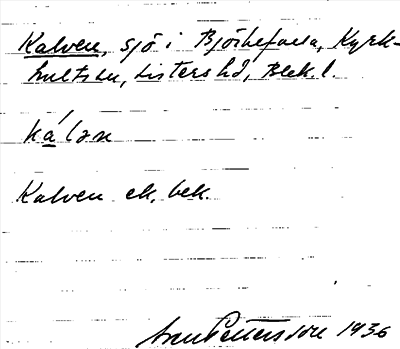 Kalven, sjö i Björkefalla, Kyrk-
hults sn, Listers hd, Blek. l.
kálən
Kalven ek. bek.
Pettersson 1936